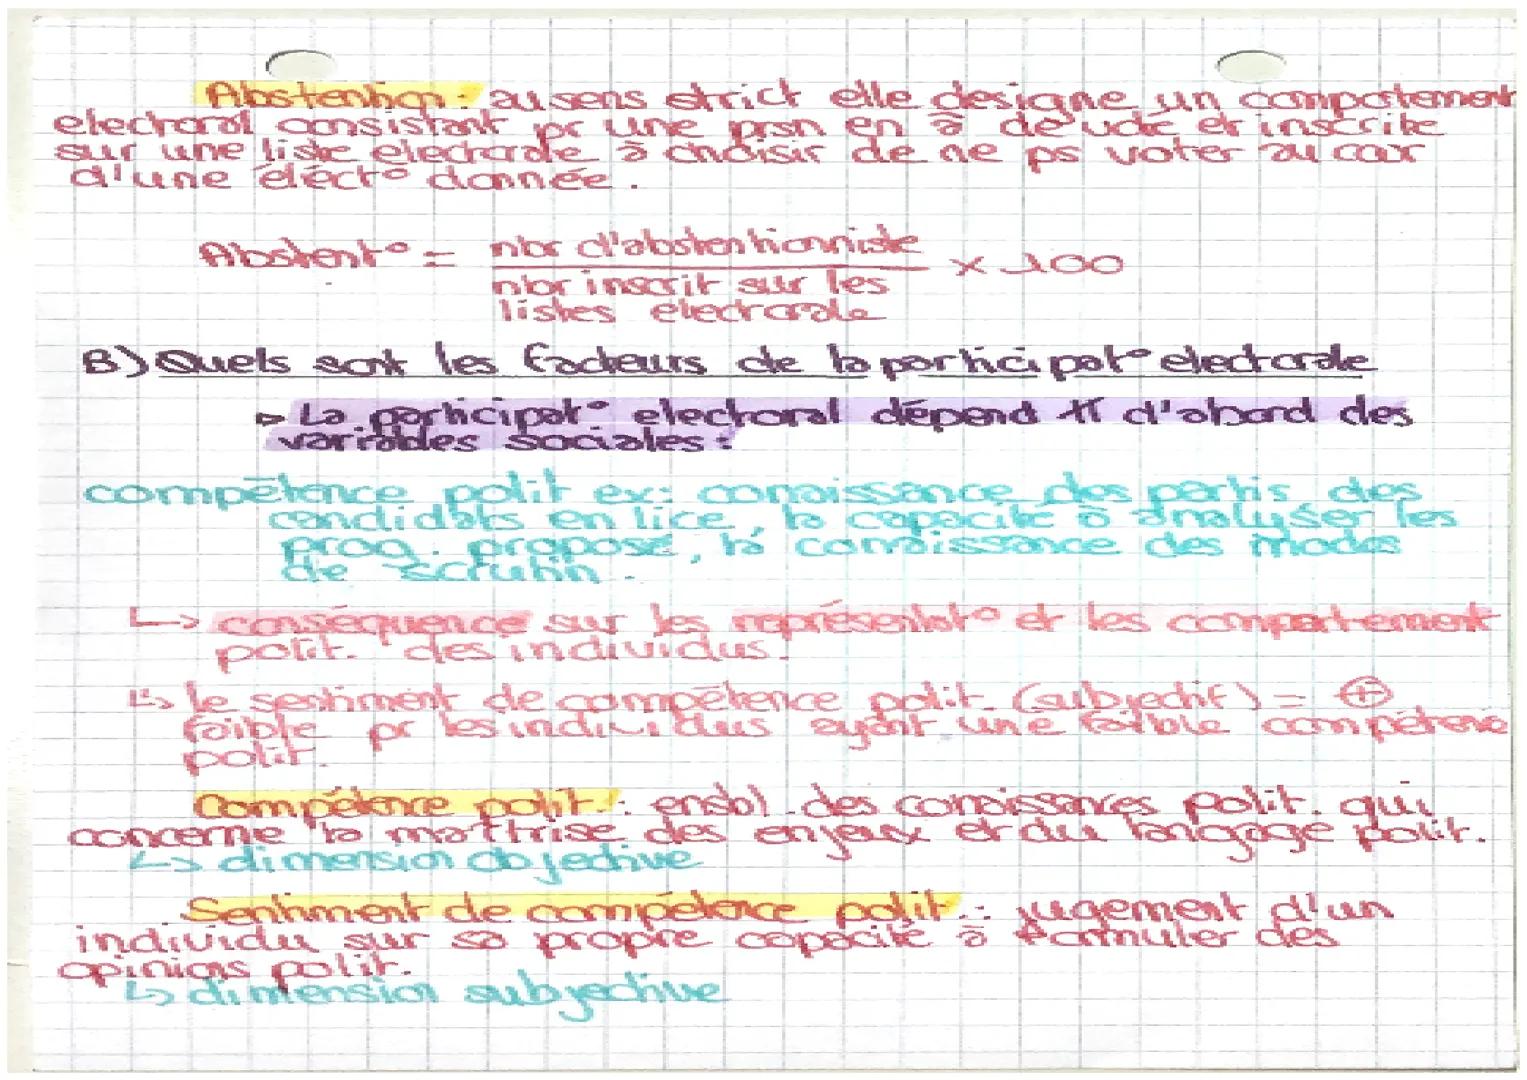 Abstention : au sens strict elle designe un compotement
electoral consistant pr une prsn en â de vote et inscrite
sur une liste electorale à choisir de ne ps voter au cour
d'une électº donnée.
Abstentº = nbr d'abstentionniste × 100
nbr inscrit sur les
listes electorale
B) Quels sont les facteurs de la participatº electorale
▷ La participatº electoral dépend tt d'abord des
variables sociales :
compétence polit ex: connaissance des partis des
candidats en lice, la capacité à analyser les
prog. proposé, la connaissance des modes
de scrutin.
↳ conséquence sur les représentatº et les comportement
polit. des individus.
↳ le sentiment de compétence polit. (subjectif) = ⊕
faible pr les individus ayant une faible compétence
polit.
Compétence polit. : ensbl. des connaissances polit. qui
concerne la maîtrise des enjeux et du langage polit.
↳ dimension objective
Sentiment de compétence polit. : jugement d'un
individu sur sa propre capacité à formuler des
opinions polit.
↳ dimension subjective